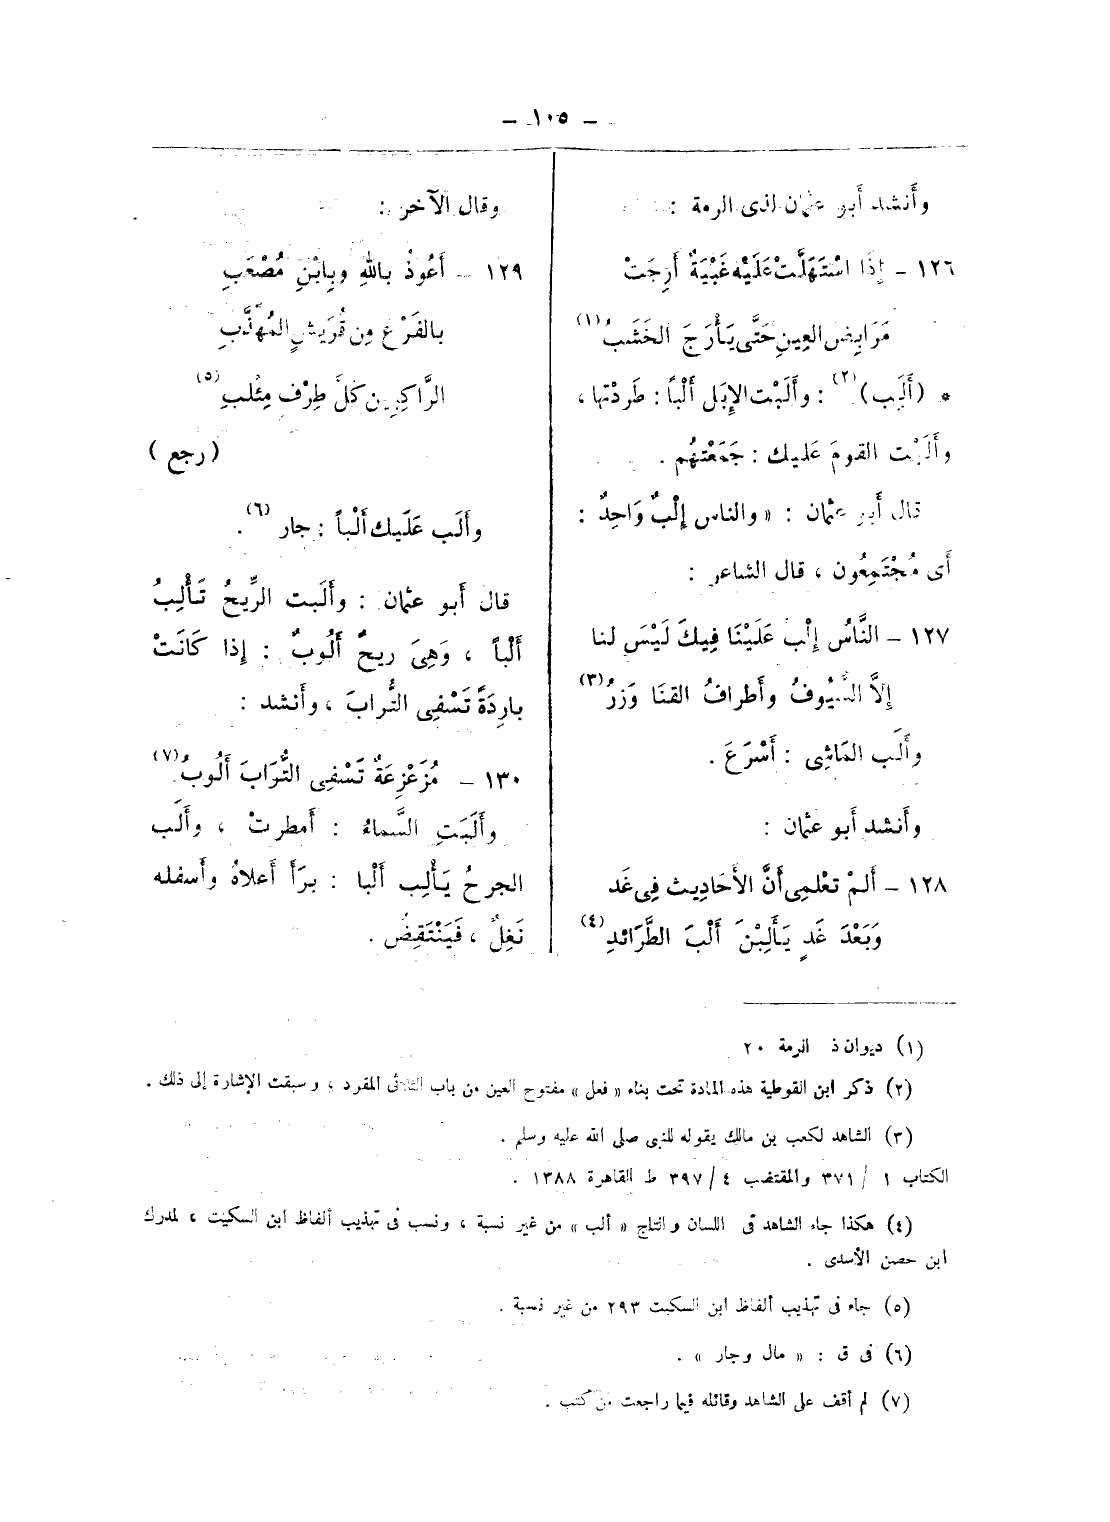 — ١٠٥ —
وأَنشد أَبو عثمان لذى الرمة :
١٢٦ – إِذَا اسْتَهَلَّتْ عَلَيْه غَبْيَةٌ أَرِجَتْ
مَرَابِضُ العِينِ حَتَّى يَأْرَجَ الخَشَبُ (١)
* (أَلَب) (٢) : وأَلَبْت الإِبَل أَلْباً : طَردْتها ،
وأَلَبْت القومَ عَليك : جَمَعْتُهُم .
قال أَبو عثمان : « والناس إِلْبٌ وَاحِدٌ :
أَى مُجْتَمِعُون ، قال الشاعر :
١٢٧ – النَّاسُ إِلْبٌ عَلَيْنَا فِيكَ لَيْسَ لنا
إِلاَّ السُّيُوفُ وأَطرافُ القنَا وَزرُ (٣)
وأَلَب المَاشِى : أَسْرَعَ .
وأَنشد أَبو عثمان :
١٢٨ – أَلمْ تعْلمِى أَنَّ الأَحَاديث فِى غَد
وَبَعْدَ غَدٍ يَأْلِبْنَ أَلْبَ الطَّرَائدِ (٤)
وقال الآخر :
١٢٩ – أَعُوذُ باللهِ وبِابْنِ مُصْعَبِ
بالفَرْعِ مِن قُرَيْشٍ المُهَذَّبِ
الرَّاكِبِين كلَّ طِرْف مِئْلبِ (٥)
( رجع )
وأَلَب عَلَيك أَلْباً : جار (٦) .
قال أَبو عثمان : وأَلَبت الرِّيحُ تَأْلِبُ
أَلْباً ، وَهِىَ ريحٌ أَلُوبٌ : إِذا كَانَتْ
بارِدَةً تَسْفِى التُّرابَ ، وأَنشد :
١٣٠ – مُزَعْزِعَةٌ تَسْفِى التُّرَابَ أَلُوبُ (٧)
وأَلَبَتِ السَّماءُ : أَمطرتْ ، وأَلَب
الجرحُ يَأْلِب أَلْبا : برَأَ أَعلاهُ وأَسفله
نَغِلٌ ، فَيَنْتَقِضُ .
(١) ديوان ذ الرمة ٢٠
(٢) ذكر ابن القوطية هذه المادة تحت بناء « فعل » مفتوح العين من باب الثلاثى المفرد ، وسبقت الإشارة إلى ذلك .
(٣) الشاهد لكعب بن مالك يقوله للنبى صلى الله عليه وسلم .
الكتاب ١ / ٣٧١ والمقتضب ٤ / ٣٩٧ ط القاهرة ١٣٨٨ .
(٤) هكذا جاء الشاهد فى اللسان والتاج « ألب » من غير نسبة ، ونسب فى تهذيب ألفاظ ابن السكيت ، لمدرك
ابن حصن الأسدى .
(٥) جاء فى تهذيب ألفاظ ابن السكيت ٢٩٣ من غير نسبة .
(٦) فى ق : « مال وجار » .
(٧) لم أقف على الشاهد وقائله فيما راجعت من كتب .